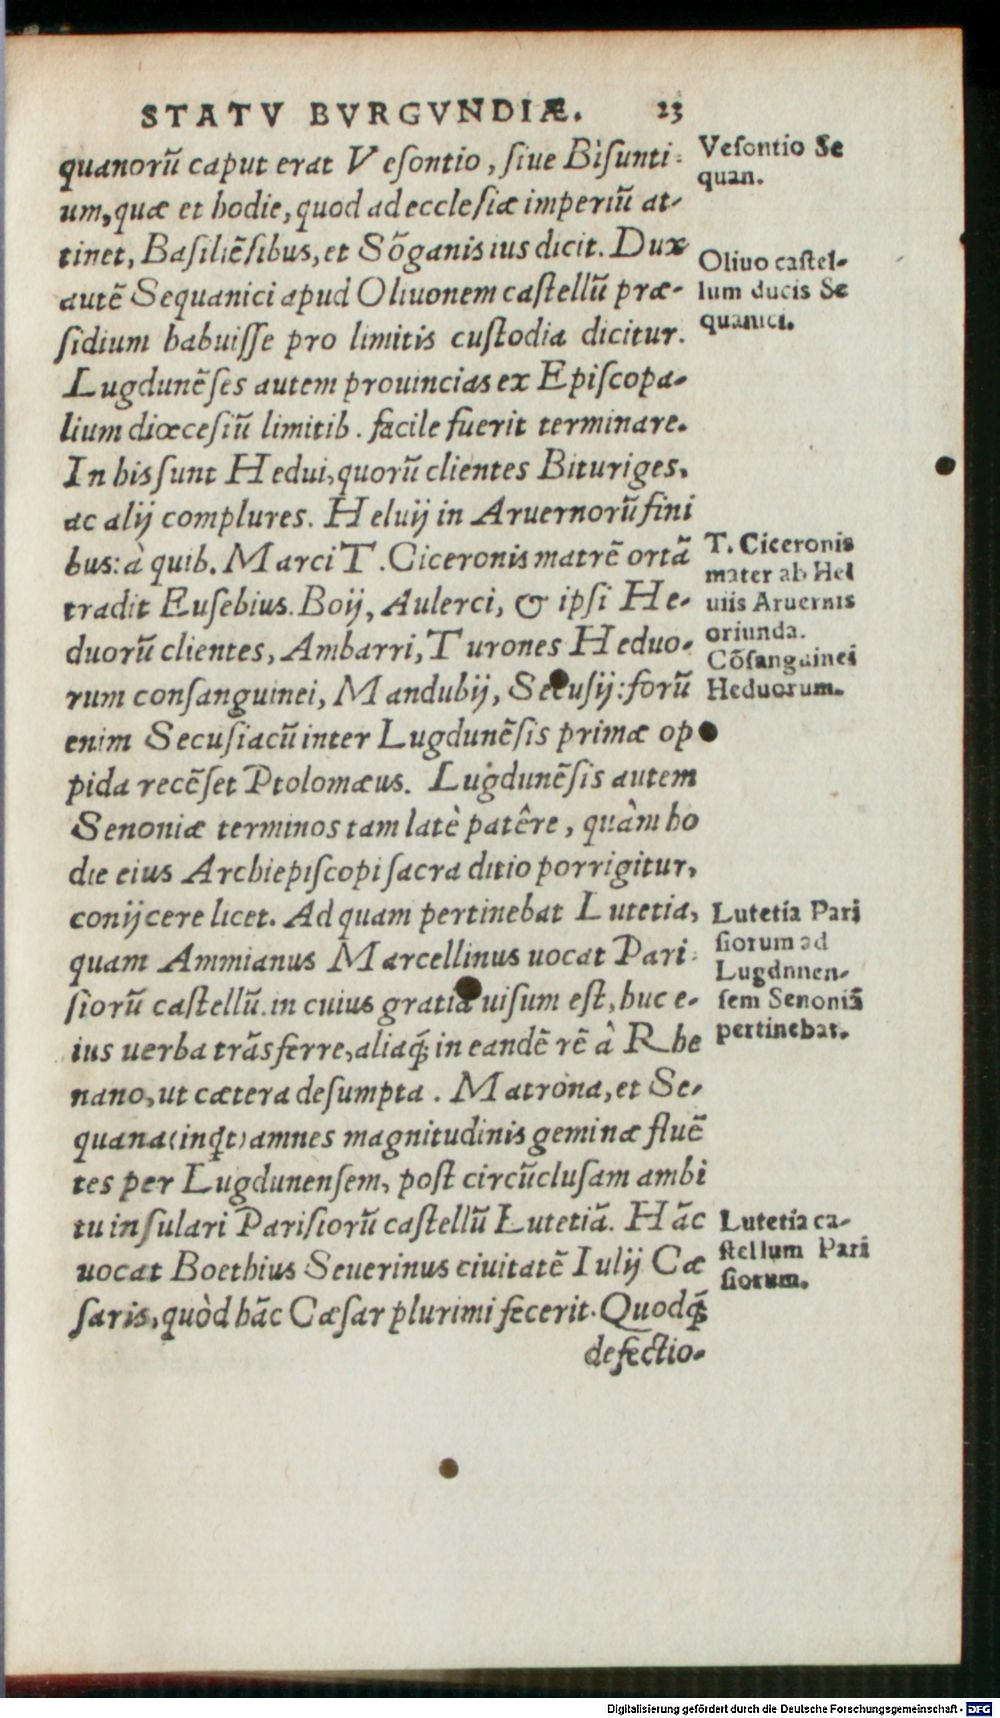 STATV BVRGVNDIÆ. 23
quanorũ caput erat Vesontio, siue Bisunti-
um, quæ et hodie, quod ad ecclesiæ imperiũ at-
tinet, Basiliẽsibus, et Sõganis ius dicit. Dux
autẽ Sequanici apud Oliuonem castellũ præ-
sidium habuisse pro limitis custodia dicitur.
Lugdunẽses autem prouincias ex Episcopa-
lium diœcesiũ limitib. facile fuerit terminare.
In his sunt Hedui, quorũ clientes Bituriges,
ac alij complures. Heluij in Aruernorũ fini
bus: à quib. Marci T. Ciceronis matrẽ ortã
tradit Eusebius. Boij, Aulerci, & ipsi He-
duorũ clientes, Ambarri, Turones Heduo-
rum consanguinei, Mandubij, Secusij: forũ
enim Secusiacũ inter Lugdunẽsis primæ op
pida recẽset Ptolomæus. Lugdunẽsis autem
Senoniæ terminos tam latè patêre, quàm ho
die eius Archiepiscopi sacra ditio porrigitur,
conijcere licet. Ad quam pertinebat Lutetia,
quam Ammianus Marcellinus uocat Pari-
siorũ castellũ. in cuius gratia uisum est, huc e-
ius uerba trãsferre, aliaq́; in eandẽ rẽ à Rhe
nano, ut cætera desumpta. Matrona, et Se-
quana (inq̃t) amnes magnitudinis geminæ fluẽ
tes per Lugdunensem, post circũclusam ambi
tu insulari Parisiorũ castellũ Lutetiã. Hãc
uocat Boethius Seuerinus ciuitatẽ Iulij Cæ
saris, quòd hãc Cæsar plurimi fecerit. Quodq́;
defectio-
Vesontio Se
quan.
Oliuo castel-
lum ducis Se
quanici.
T. Ciceronis
mater ab Hel
uiis Aruernis
oriunda.
Cõsanguinei
Heduorum.
Lutetia Pari
siorum ad
Lugdnnen-
sem Senoniã
pertinebat.
Lutetia ca-
stellum Pari
siorum.
Digitalisierung gefördert durch die Deutsche Forschungsgemeinschaft - DFG